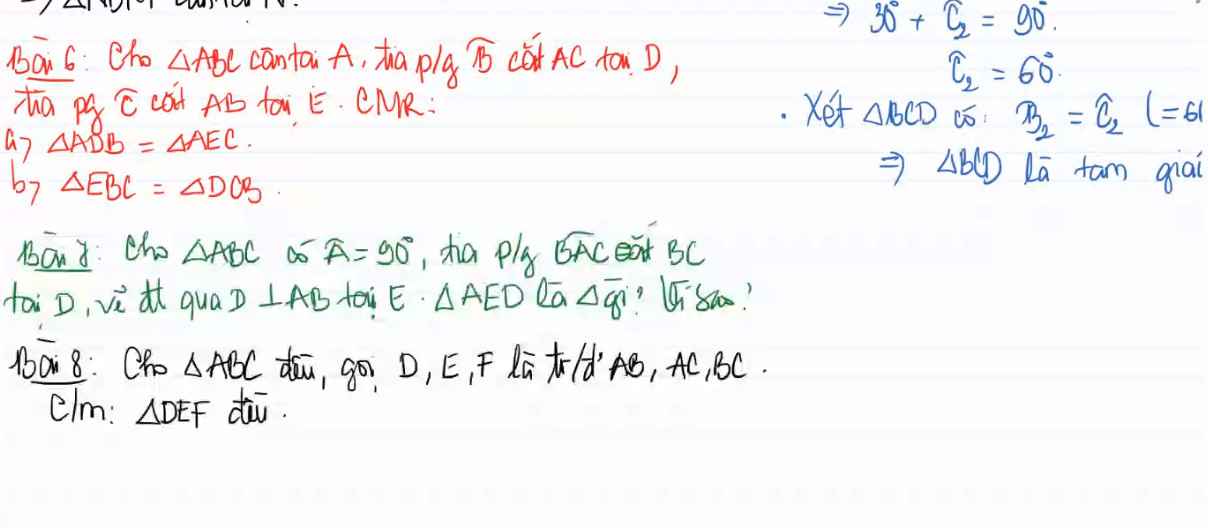 Bài 6: Cho △ABC cân tại A, tia p/g B̂ cắt AC tại D,
tia pg Ĉ cắt AB tại E. CMR:
a) △ADB = △AEC.
b) △EBC = △DCB.
Bài 7: Cho △ABC có Â = 90°, tia p/g BAC cắt BC
tại D, vẽ đt qua D ⊥ AB tại E. △AED là △ gì? Vì sao?
Bài 8: Cho △ABC đều, gọi D, E, F là tr/đ' AB, AC, BC.
C/m: △DEF đều.
⇒ 30° + Ĉ₂ = 90°.
Ĉ₂ = 60°.
• Xét △BCD có: B̂₂ = Ĉ₂ (= 6
⇒ △BCD là tam giá